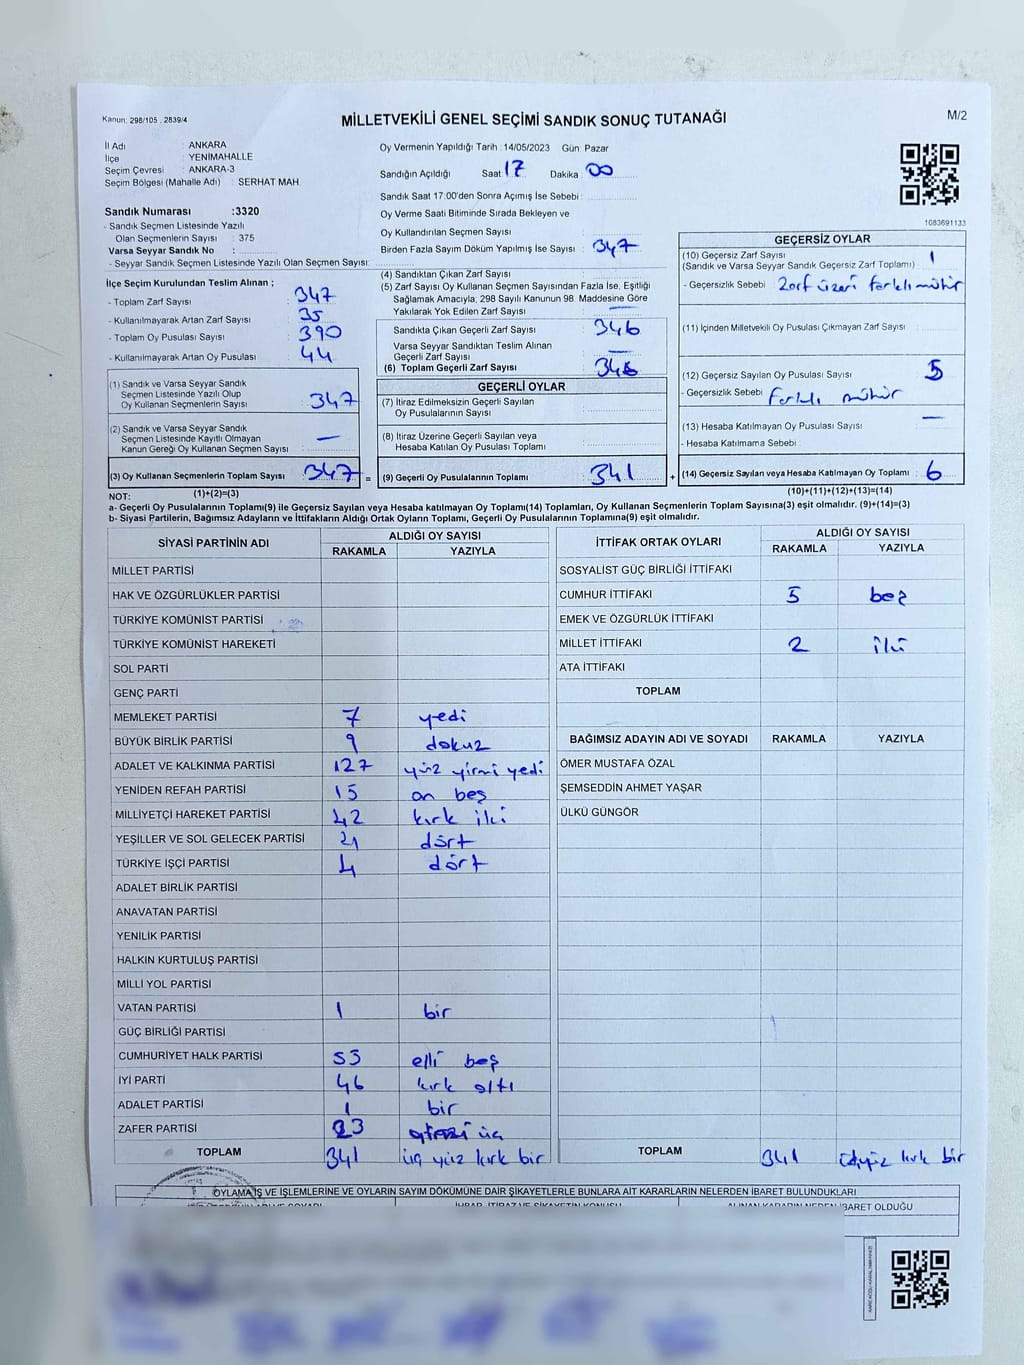 Kanun: 298/105 , 2839/4
MİLLETVEKİLİ GENEL SEÇİMİ SANDIK SONUÇ TUTANAĞI
M/2
İl Adı : ANKARA
İlçe YENİMAHALLE
Seçim Çevresi : ANKARA-3
Seçim Bölgesi (Mahalle Adı) : SERHAT MAH.
Sandık Numarası :3320
- Sandık Seçmen Listesinde Yazılı
Olan Seçmenlerin Sayısı : 375
Varsa Seyyar Sandık No :
- Seyyar Sandık Seçmen Listesinde Yazılı Olan Seçmen Sayısı:
Oy Vermenin Yapıldığı Tarih : 14/05/2023 Gün: Pazar
Sandığın Açıldığı Saat 17 Dakika 00
Sandık Saat 17:00'den Sonra Açımış İse Sebebi :
Oy Verme Saati Bitiminde Sırada Bekleyen ve
Oy Kullandırılan Seçmen Sayısı :
Birden Fazla Sayım Döküm Yapılmış İse Sayısı : 347
1083691133
İlçe Seçim Kurulundan Teslim Alınan ;
- Toplam Zarf Sayısı : 347
- Kullanılmayarak Artan Zarf Sayısı : 35
- Toplam Oy Pusulası Sayısı : 390
- Kullanılmayarak Artan Oy Pusulası : 44
(1) Sandık ve Varsa Seyyar Sandık
Seçmen Listesinde Yazılı Olup
Oy Kullanan Seçmenlerin Sayısı : 347
(2) Sandık ve Varsa Seyyar Sandık
Seçmen Listesinde Kayıtlı Olmayan
Kanun Gereği Oy Kullanan Seçmen Sayısı : —
(3) Oy Kullanan Seçmenlerin Toplam Sayısı : 347 =
(1)+(2)=(3)
(4) Sandıktan Çıkan Zarf Sayısı :
(5) Zarf Sayısı Oy Kullanan Seçmen Sayısından Fazla İse, Eşitliği
Sağlamak Amacıyla, 298 Sayılı Kanunun 98. Maddesine Göre
Yakılarak Yok Edilen Zarf Sayısı : —
Sandıkta Çıkan Geçerli Zarf Sayısı : 346
Varsa Seyyar Sandıktan Teslim Alınan
Geçerli Zarf Sayısı : —
(6) Toplam Geçerli Zarf Sayısı : 346
GEÇERLİ OYLAR
(7) İtiraz Edilmeksizin Geçerli Sayılan
Oy Pusulalarının Sayısı :
(8) İtiraz Üzerine Geçerli Sayılan veya
Hesaba Katılan Oy Pusulası Toplamı :
(9) Geçerli Oy Pusulalarının Toplamı : 341 +
GEÇERSİZ OYLAR
(10) Geçersiz Zarf Sayısı
(Sandık ve Varsa Seyyar Sandık Geçersiz Zarf Toplamı) : 1
- Geçersizlik Sebebi : Zarf üzeri farklı mühür
(11) İçinden Milletvekili Oy Pusulası Çıkmayan Zarf Sayısı :
(12) Geçersiz Sayılan Oy Pusulası Sayısı : 5
- Geçersizlik Sebebi : Farklı mühür
(13) Hesaba Katılmayan Oy Pusulası Sayısı : —
- Hesaba Katılmama Sebebi :
(14) Geçersiz Sayılan veya Hesaba Katılmayan Oy Toplamı : 6
(10)+(11)+(12)+(13)=(14)
NOT:
a- Geçerli Oy Pusulalarının Toplamı(9) ile Geçersiz Sayılan veya Hesaba katılmayan Oy Toplamı(14) Toplamları, Oy Kullanan Seçmenlerin Toplam Sayısına(3) eşit olmalıdır. (9)+(14)=(3)
b- Siyasi Partilerin, Bağımsız Adayların ve İttifakların Aldığı Ortak Oyların Toplamı, Geçerli Oy Pusulalarının Toplamına(9) eşit olmalıdır.
SİYASİ PARTİNİN ADI ALDIĞI OY SAYISI
RAKAMLA YAZIYLA
MİLLET PARTİSİ
HAK VE ÖZGÜRLÜKLER PARTİSİ
TÜRKİYE KOMÜNİST PARTİSİ
TÜRKİYE KOMÜNİST HAREKETİ
SOL PARTİ
GENÇ PARTİ
MEMLEKET PARTİSİ 7 yedi
BÜYÜK BİRLİK PARTİSİ 9 dokuz
ADALET VE KALKINMA PARTİSİ 127 yüz yirmi yedi
YENİDEN REFAH PARTİSİ 15 on beş
MİLLİYETÇİ HAREKET PARTİSİ 42 kırk iki
YEŞİLLER VE SOL GELECEK PARTİSİ dört
TÜRKİYE İŞÇİ PARTİSİ 4 dört
ADALET BİRLİK PARTİSİ
ANAVATAN PARTİSİ
YENİLİK PARTİSİ
HALKIN KURTULUŞ PARTİSİ
MİLLİ YOL PARTİSİ
VATAN PARTİSİ 1 bir
GÜÇ BİRLİĞİ PARTİSİ
CUMHURİYET HALK PARTİSİ 55 elli beş
İYİ PARTİ 46 kırk altı
ADALET PARTİSİ 1 bir
ZAFER PARTİSİ 23 üç
TOPLAM 341 üç yüz kırk bir
İTTİFAK ORTAK OYLARI ALDIĞI OY SAYISI
RAKAMLA YAZIYLA
SOSYALİST GÜÇ BİRLİĞİ İTTİFAKI
CUMHUR İTTİFAKI 5 beş
EMEK VE ÖZGÜRLÜK İTTİFAKI
MİLLET İTTİFAKI 2 iki
ATA İTTİFAKI
TOPLAM
BAĞIMSIZ ADAYIN ADI VE SOYADI RAKAMLA YAZIYLA
ÖMER MUSTAFA ÖZAL
ŞEMSEDDİN AHMET YAŞAR
ÜLKÜ GÜNGÖR
TOPLAM 341 üçyüz kırk bir
OYLAMA İŞ VE İŞLEMLERİNE VE OYLARIN SAYIM DÖKÜMÜNE DAİR ŞİKAYETLERLE BUNLARA AİT KARARLARIN NELERDEN İBARET BULUNDUKLARI
İHBAR, İTİRAZ VE ŞİKAYETİN KONUSU ALINAN KARARIN NEDEN İBARET OLDUĞU